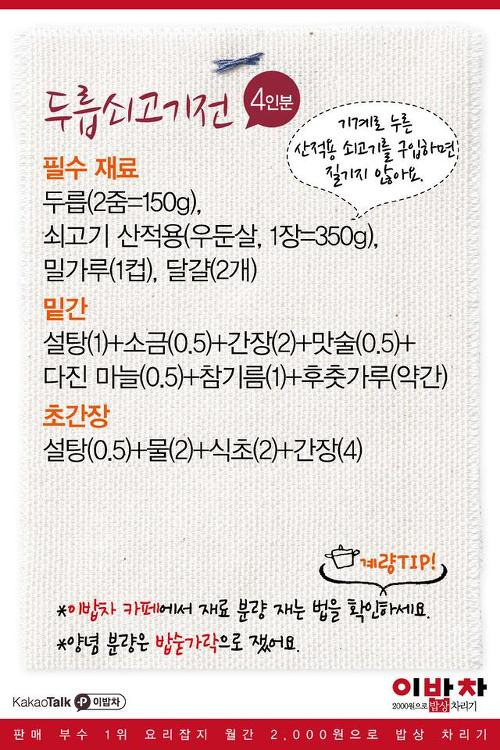 두릅쇠고기전 4인분
기계로 누른
산적용 쇠고기를 구입하면
질기지 않아요.
필수 재료
두릅(2줌=150g),
쇠고기 산적용(우둔살, 1장=350g),
밀가루(1컵), 달걀(2개)
밑간
설탕(1)+소금(0.5)+간장(2)+맛술(0.5)+
다진 마늘(0.5)+참기름(1)+후춧가루(약간)
초간장
설탕(0.5)+물(2)+식초(2)+간장(4)
계량TIP!
*이밥차 카페에서 재료 분량 재는 법을 확인하세요.
*양념 분량은 밥숟가락으로 쟀어요.
KakaoTalk P 이밥차
이밥차
2000원으로 밥상 차리기
판매 부수 1위 요리잡지 월간 2,000원으로 밥상 차리기